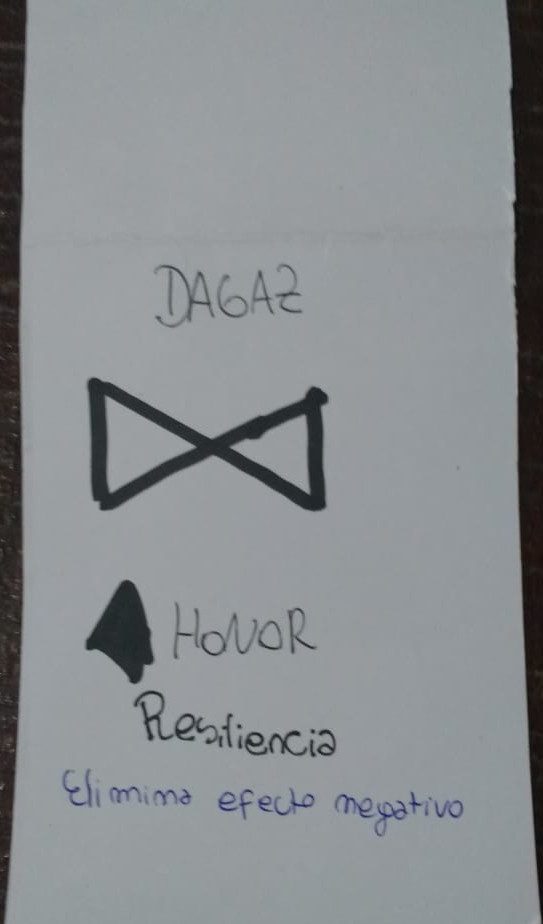 DAGAZ
HONOR
Resiliencia
Elimina efecto negativo